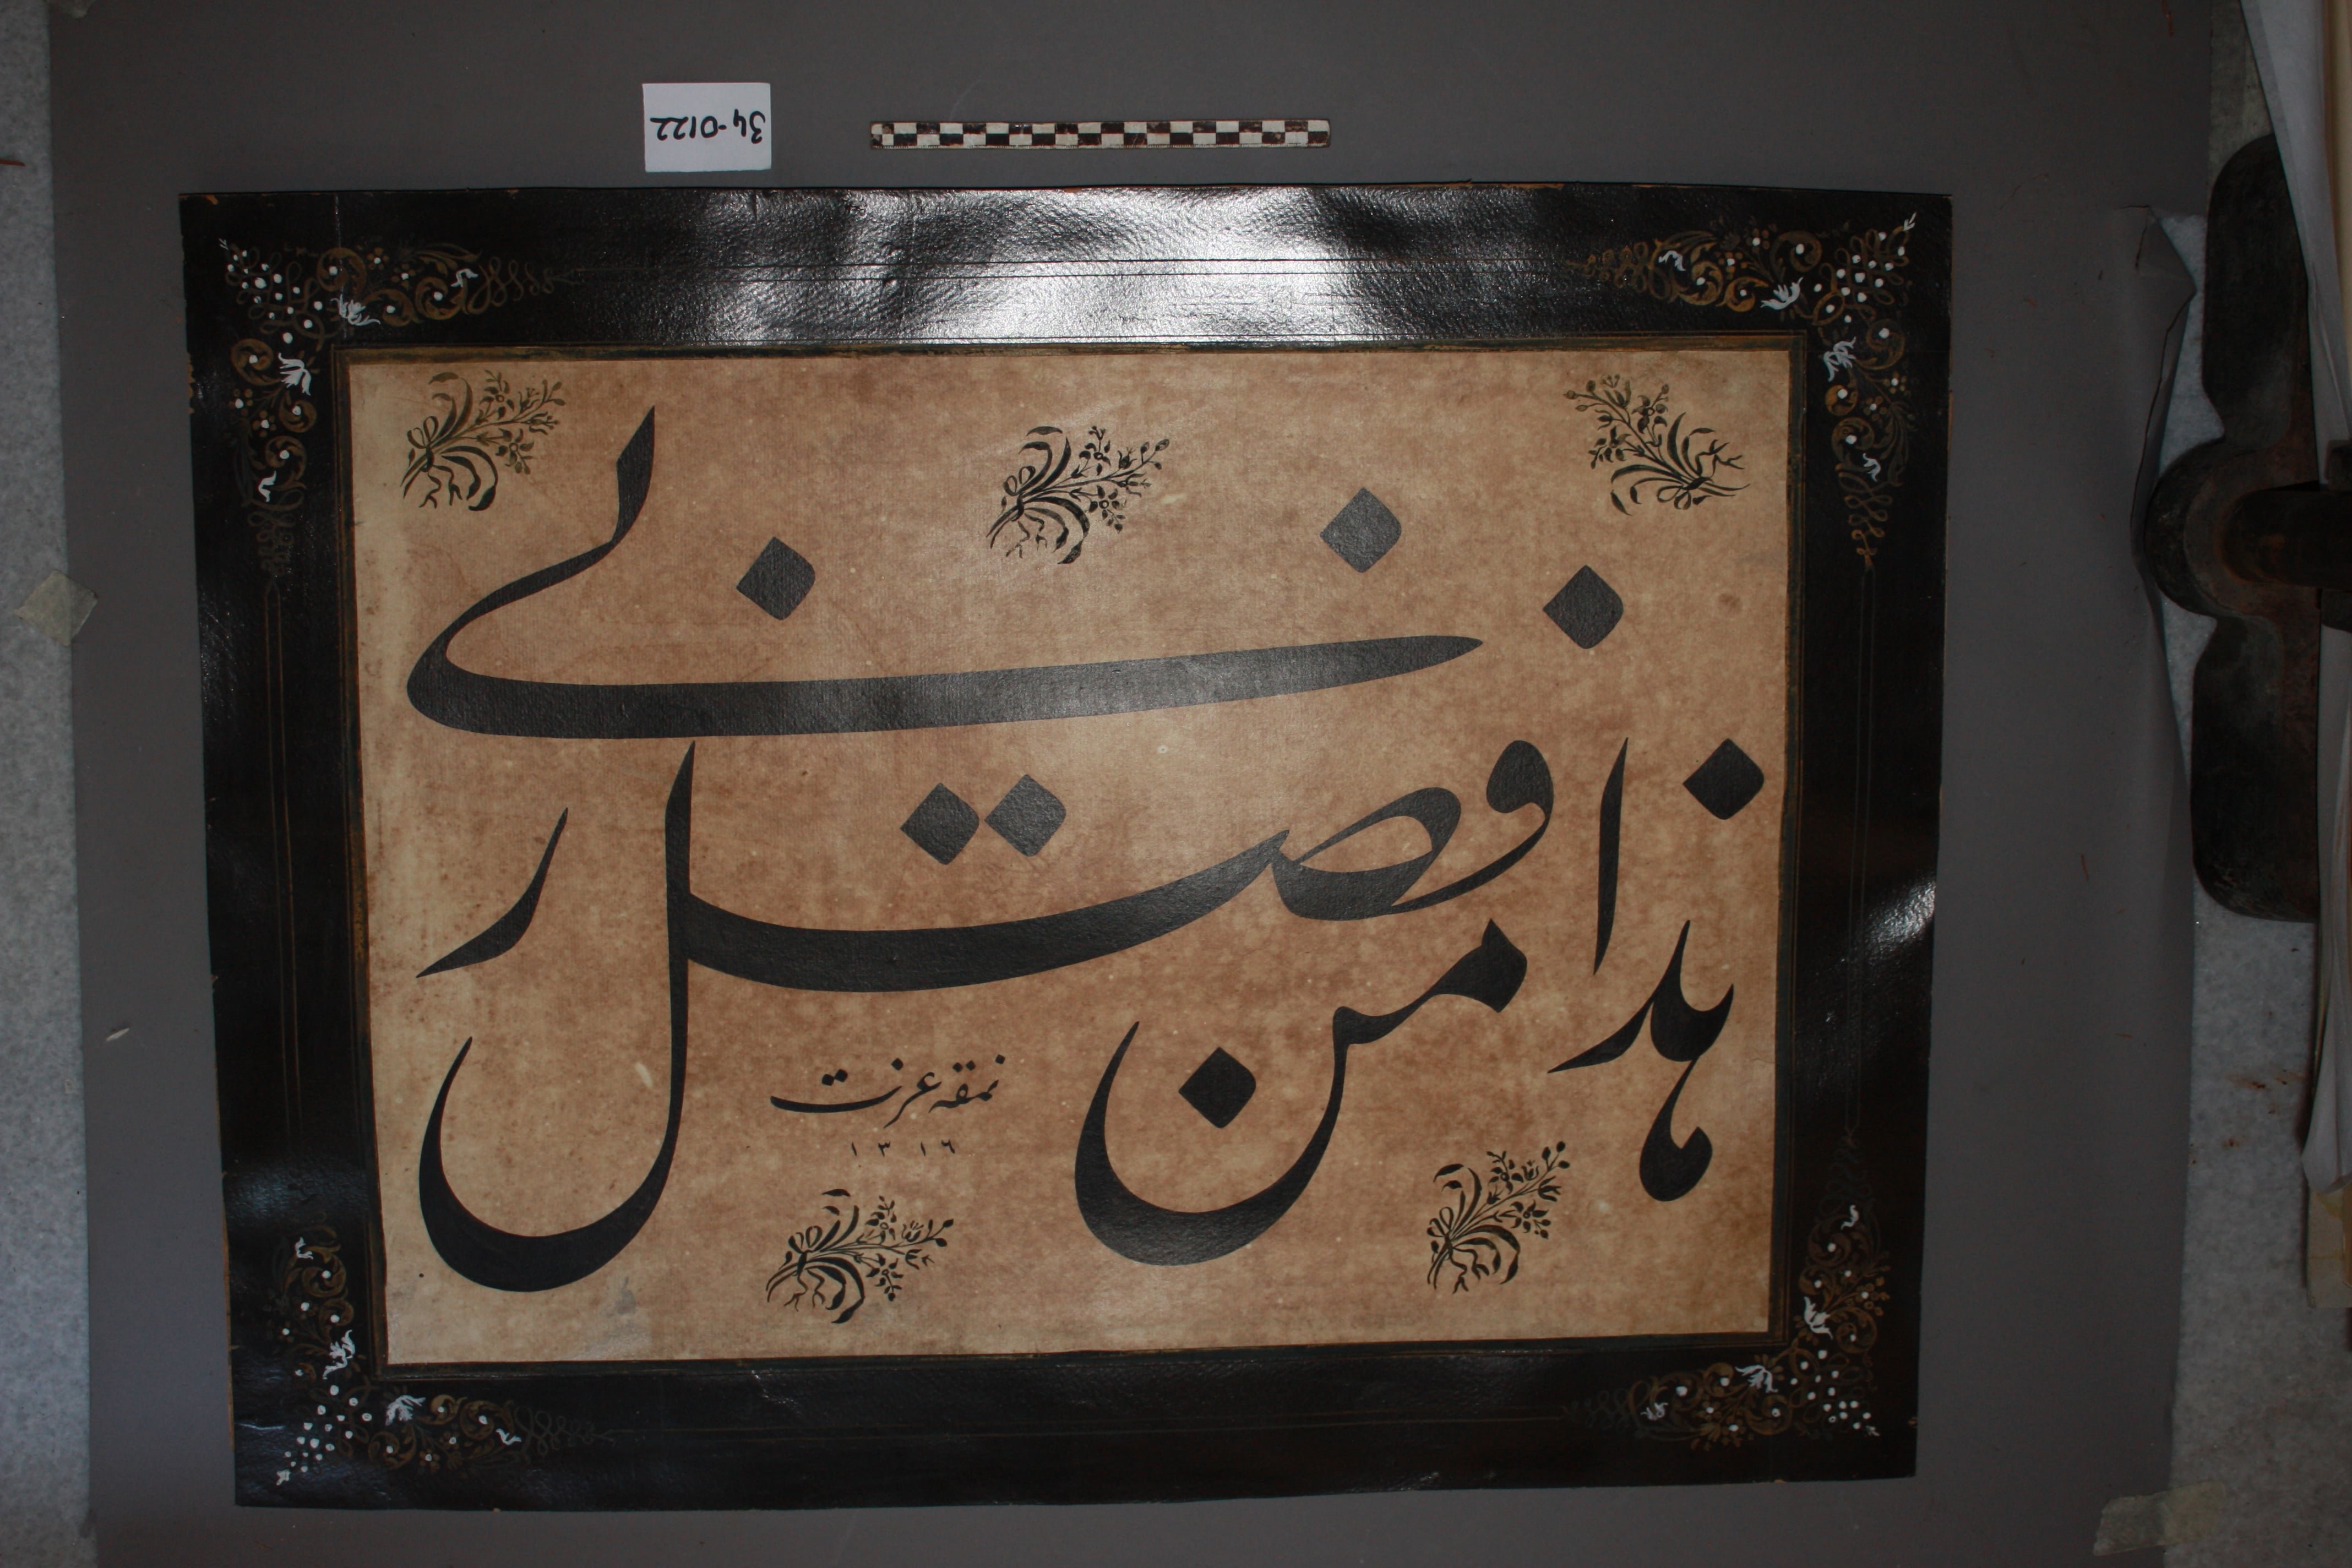 34-0122
هذا من فضل ربى
نمقه عزت
١٣١٦